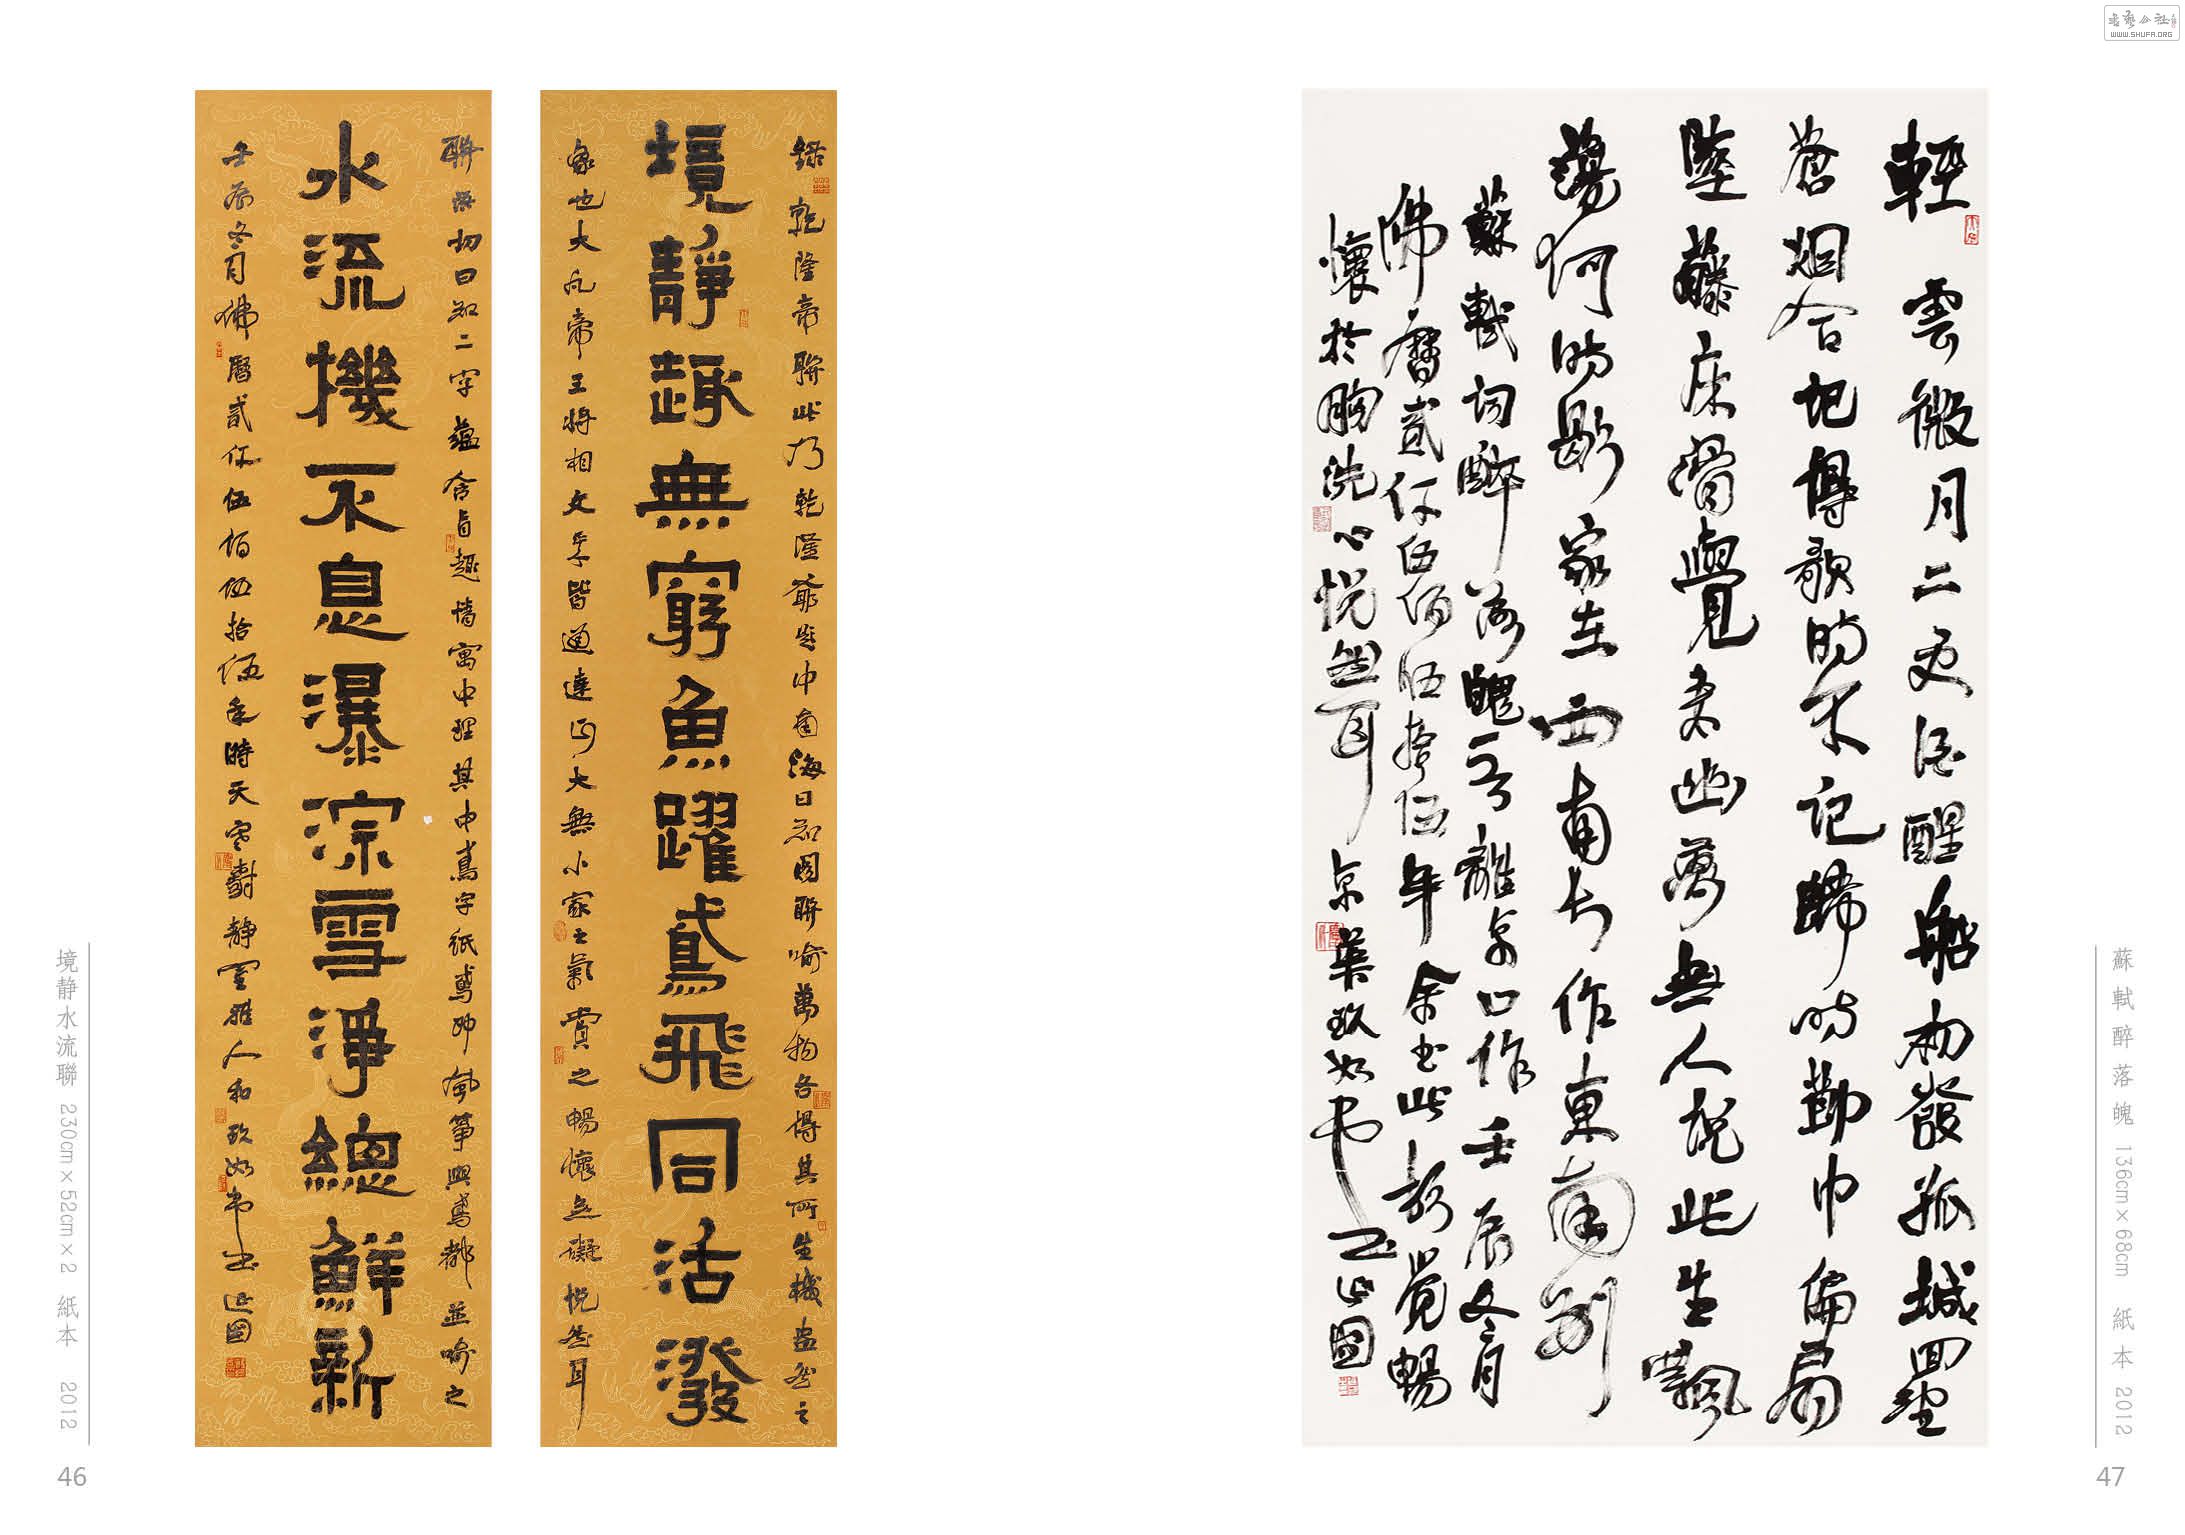 聯 切日知二字蘊含旨趣情寓中理其中鳶字紙鳶即風箏與鳶都並喻之
水流機不息瀑淙雪淨總鮮新
壬辰冬月佛曆貳仟伍佰伍拾伍年時天寒 静室雅人和玖如 书
録乾隆帝聯此乃乾隆爺題中南海日知閣聯喻萬物各得其所生機盎然之
境静趣無窮魚躍鳶飛同活潑
象也大凡帝王將相文采皆通達 大無小家之氣賞之暢懷無礙悦然耳
境静水流聯 230cm×52cm×2 紙本 2012
46
輕雲微月二更酒醒船初發孤城回望
蒼烟合記得歌時不記歸時節巾偏扇
墜藤床滑覺來幽夢無人説此生飄
蕩何時歇家在西南長作東南别
蘇軾詞醉落魄 離京口作壬辰冬月
佛曆貳仟伍佰伍拾伍年余书此頗覺暢
懷於胸洗心悦然耳 京華玖如 书
蘇軾醉落魄 136cm×68cm 紙本 2012
47
書藝公社
WWW.SHUFA.ORG